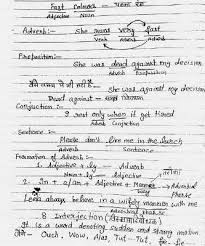 Fast Colours → पक्के रंग
Adjective Noun
• Adverb:- She runs very fast
Verb Adverb Adverb
Preposition:-
She was dead against my decision
Adverb Preposition
She was against my decision
Dead against →
Conjuction :-
I rest only when it got
Adverb Conjuction
Sentence :-
Please don't live me in the
Formation of Adverb :-
1. Adjective + ly → Adverb
Noun + ly → Adjective
2. In + a/an + Adjective + Manner → Adverbial Phrase
Lena always behave in a wifely manner with me
Adverbial phrase
8 Interjection
It is a word denoting sudden and strong motion
Ouch, Wow, Alas, Tut-Tut,